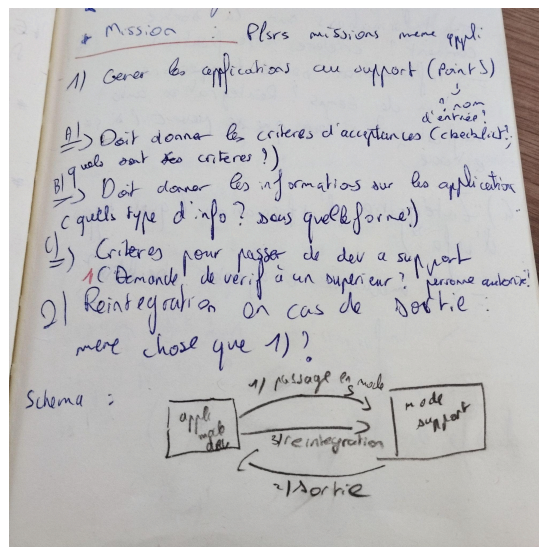 * Mission : Plsrs missions meme appli
1) Gerer les applications au support (Point S)
↓
nom
d'entrée?
A) => Doit donner les criteres d'acceptances (checklist?,
quels sont ses criteres?)
B) => Doit donner les informations sur les application
(quells type d'info? sous quelle forme?)
C) => Criteres pour passer de dev a support
1 (Demande de verif à un superieur? personne autorisé?
2) Reintegration en cas de sortie :
meme chose que 1) ?
Schema :
1) passage en S mode
appli mode dev
mode support
3) reintegration
2) sortie